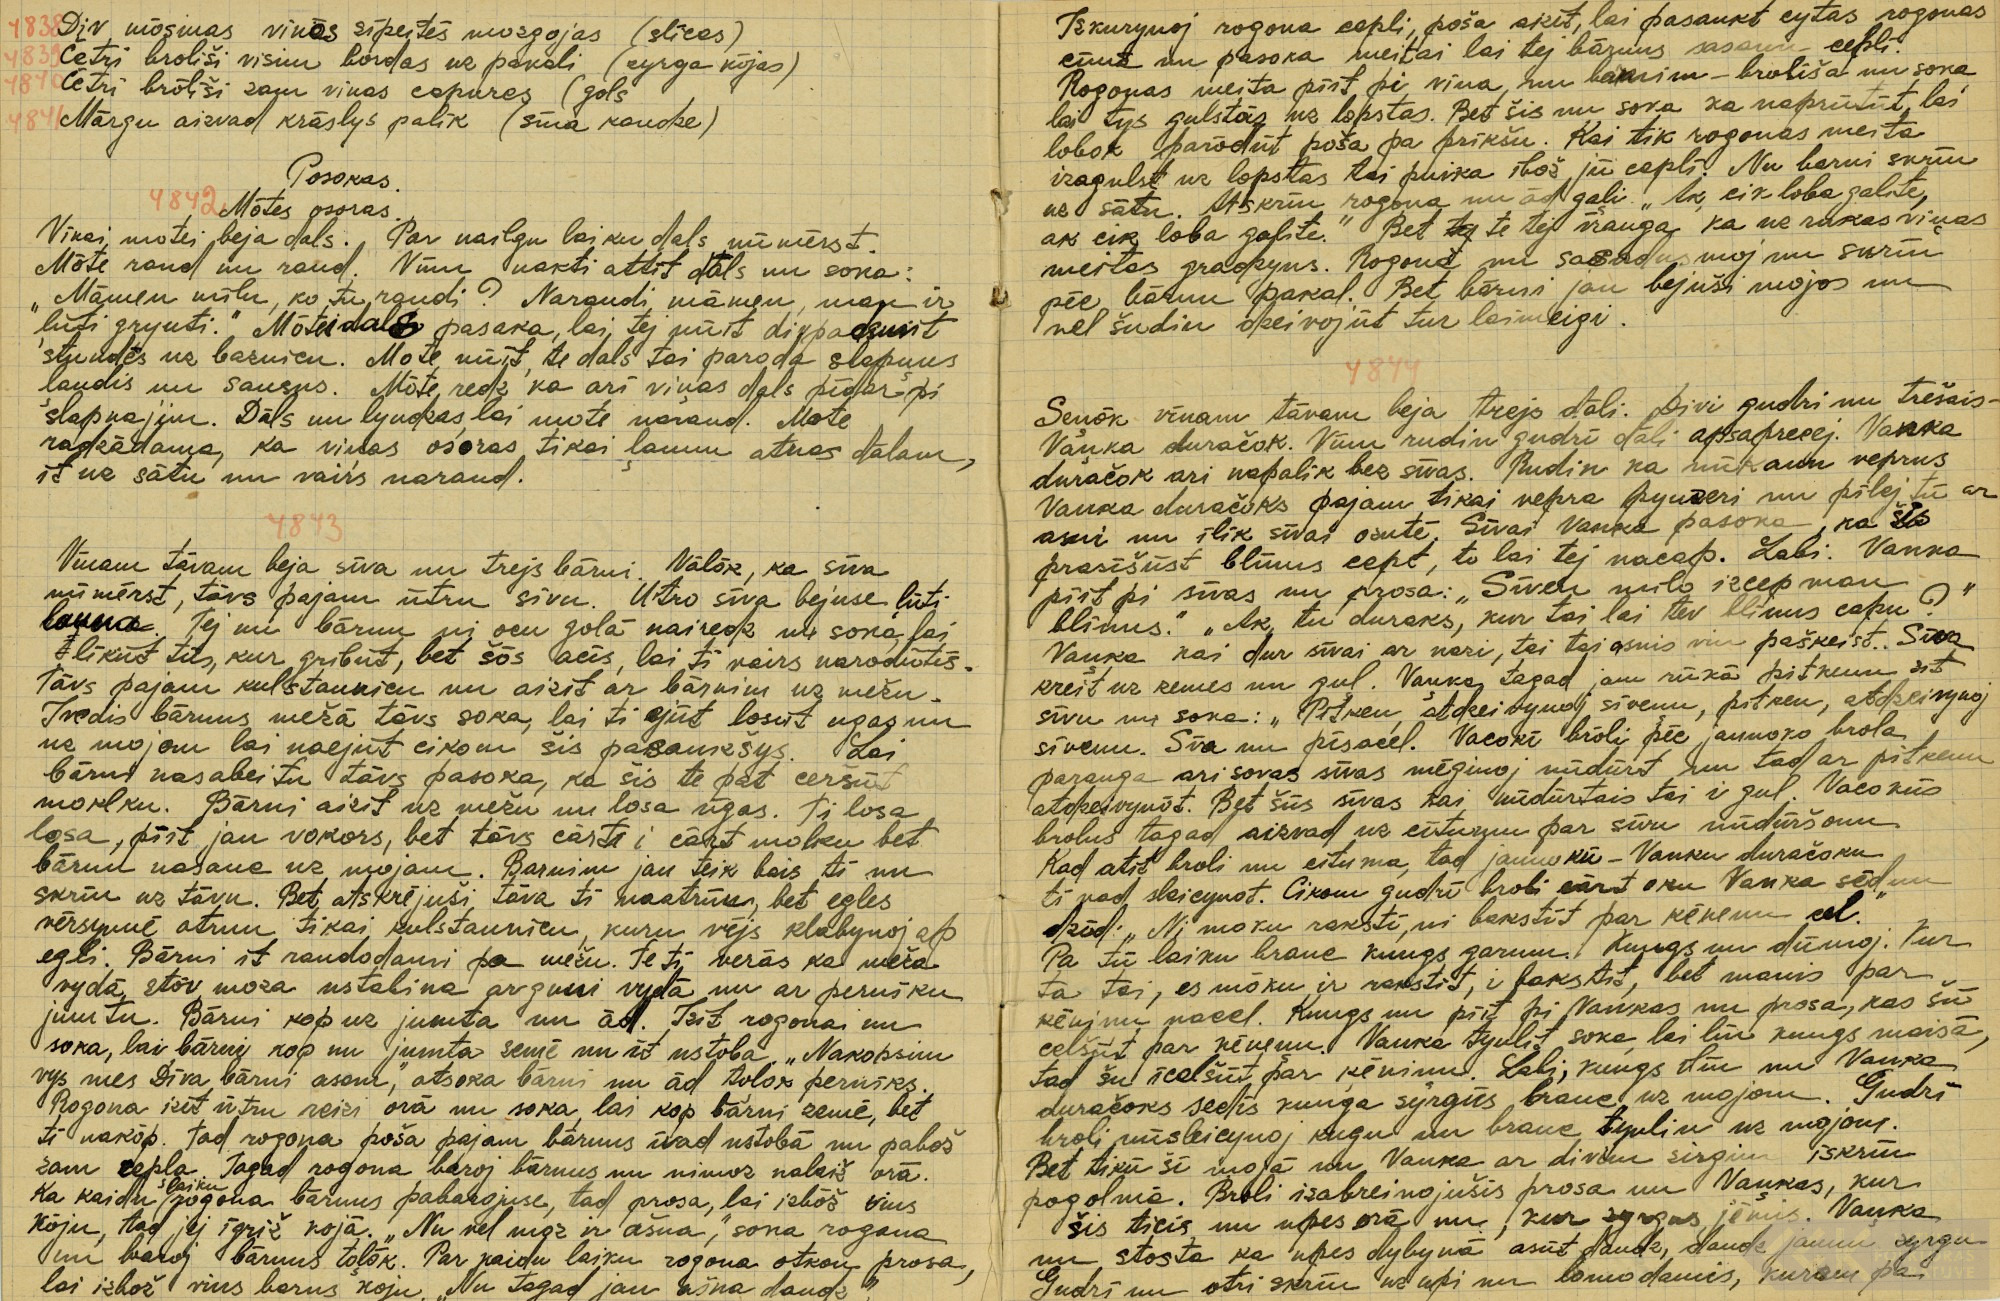 4838 Div mōsiņas vīnōs sīpeitēs mozgojas (slīces)
4839 Četri broliši visim bordas uz pakaļi (zyrga kōjas)
4840 Četri brōliši zam vīnas cepures (gols
4841 Mārgu aizvad krāslys palīk (sīna kaudze)
Posokas.
4842 Mōtes osoras.
Vīnai motei beja dāls. Par nailgu laiku dāls nūmērst.
Mōte raud nu raud. Vīnu nakti attīt dāls nu soka:
"Māmeņ mīlu, ko tu raudi? Naraudi, māmeņ, maņ ir
ļūti gryuti." Mōtei dāls pasaka, lai tej nūīt divpadsmit
stundēs uz bazneicu. Mote nūīt, te dāls tai paroda slapnus
ļaudis nu sausus. Mōte redz ka ari viņas dāls pīdar pi
slapnajim. Dāls nu lyudzas, lai mote naraud. Mote
radzādama, ka viņas osoras tikai ļaunu atnas dālam,
īt uz sātu nu vairs naraud.
4843
Vīnam tāvam beja sīva nu trejs bārni. Nālōk, ka sīva
nūmērst, tāvs pajam ūtru sīvu. Utro sīva bejuse ļūti
ļauna. Tej nu bārnu ni ocu golā nairedz nu soka, lai
līkūt tūs, kur gribūt, bet šōs acīs, lai tī vairs narodūtīs.
Tāvs pajam kulstauņicu nu aizīt ar bārnim uz mežu.
Īvedis bārnus mežā tāvs soka, lai tī ejūt losūt ugas nu
uz mojom lai naejūt cikom šis pasaukšys. Lai
bārni nasabeitu tāvs pasoka, ka šis te pat cersūt
molku. Bārni aizīt uz mežu nu losa ūgas. Ti losa
losa, pīīt jau vokors, bet tāvs cārti i cārt molku bet
bārnu nasauc uz mojam. Barnim jau teik bais ti nu
skrīn uz tāvu. Bet atskrējuši tāva ti naatrūn, bet egles
vērsyunē otrun tikai kulstauņicu, kuru vējs klabynoj ap
egli. Bārni īt raudodami pa mežu. Te ti verās ka meža
vydā stōv moza ustabiņa ar guni vydā nu ar perniku
jumtu. Bārni kop uz jumta nu ād. Izīt rogona nu
soka, lai bārni kop nu jumta zemē nu īt ustobā. "Nakopsim
vys mes Dīva bārni asom," atsoka bārni nu ād tolok perniks.
Rogona izīt ūtru reizi orā nu soka, lai kop bārni zemē, bet
ti nakōp. Tad rogona poša pajam bārnus īvad ustobā nu paboš
zam cepļa. Tagad rogona baroj bārnus nu nimoz nalaiž orā.
Ka kaidu laiku rogona bārnus pabarojuse, tad prosa, lai izbōž vins
kōju, tad jej īgriž kojā. "Nu vel moz ir ašņa," soka rogona
nu baroj bārnus tolōk. Par kaidu laiku rogona otkon prosa,
lai izbož vins barns koju. "Nu tagad jau ašņa daudz",
Izkurynoj rogona cepli, poša aizīt, lai pasauktu cytas rogonas
cīmā nu pasoka meitai lai tej bārnus sasaun ceplī.
Rogonas meita pīīt pi vina nu barnim – broliša nu soka
lai tys gulstās uz lopstas. Bet šis nu soka ka naprūtūt, lai
lobok parōdūt poša pa prīkšu. Kai tik rogonas meita
izagulst uz lopstas tai puika ībōž jū ceplī. Nu barni skrīn
uz sātu. Atskrīn rogona nu ād gali. "Ak, cik loba gaļite,
ak cik loba gaļite." Bet te tej īrauga ka uz rukas viņas
meitas gradzyns. Rogona nu sasadusmoj nu skrīn
pēc bārnu pakaļ. Bet bārni jau bejuši mojos nu
vel šudiņ dzeivojūt tur laimeigi.
4844
Senōk vīnam tāvam beja trejs dāli. Divi gudri nu trešais –
Vaņka duračok. Vīnu rudiņ gudrī dāli apsaprecej. Vaņka
duračok ari napalik bez sīvas. Rudiņ ka nūkaun veprus
Vaņka duračoks pajam tikai vepra pyuzeri nu pīlej tū ar
asni nu īlik sīvai ozutē. Sīvai Vaņka pasoka, ka šis
prasīšūst blīnus cept, to lai tej nacap. Labi. Vaņka
pīīt pi sīvas nu prosa: "Sīveņ mīlo izcep maņ
blīnus." "Ak, tu duraks, kur tai lai tev blīnus capu?"
Vaņka kai dur sīvai ar nazi, tai tai asnis vin paškeist. Sīva
kreit uz zemes nu guļ. Vaņka tagad jam rūkā pītkeņu sit
sīvu nu soka: "Pītkeņ, atdzeivynoj sīveņu, pītkeņ, atdzeivynoj
sīveņu. Sīva nu pīsaceļ. Vacokī broli pēc jaunoko broļa
parauga ari sovas sīvas mēginoj nūdūrt nu tad ar pītkeņu
atdzeivynōt. Bet šūs sīvas kai nūdūrtais tai i guļ. Vacokūs
brolus tagad aizvad uz cītumu par sīvu nūdūršonu.
Kad atīt broli nu cītuma, tad jaunokū – Vaņku duračoku
ti vad sleicynot. Cikom gudrū broli cārt oku Vaņka sēd nu
dzīd: "Ni moku rakstī, ni bakstīt par kēneņu ceļ."
Pa tū laiku brauc kungs garum. Kungs nu dūmoj: Kur
ta tai, es mōku ir rakstīt, i bakstīt, bet manis par
kēniņu naceļ. Kungs nu pīīt pi Vaņkas nu prosa, kas šū
celšūt par kēneņu. Vaņka tyuliņ soka, lai līn kungs maisā,
tad šu īcelšūt par kēniņu. Labi, kungs līn nu Vaņka
duračoks sēdis kunga syrgūs brauc uz mojom. Gudri
broli nūsleicynoj kugu nu brauc tyuliņ uz mojom.
Bet tikū šī mojā nu Vaņka ar divim sirgim īskrīn
pogolmā. Broli izabreinojušīs prosa nu Vaņkas, kur
šis ticis nu upes orā nu, kur zyrgus jēmis. Vaņka
nu stosta ka upes dybynā asūt daudz, daudz jaunu zyrgu
Gudrī nu otri skrīn uz upi nu lomodamīs, kuram pa-